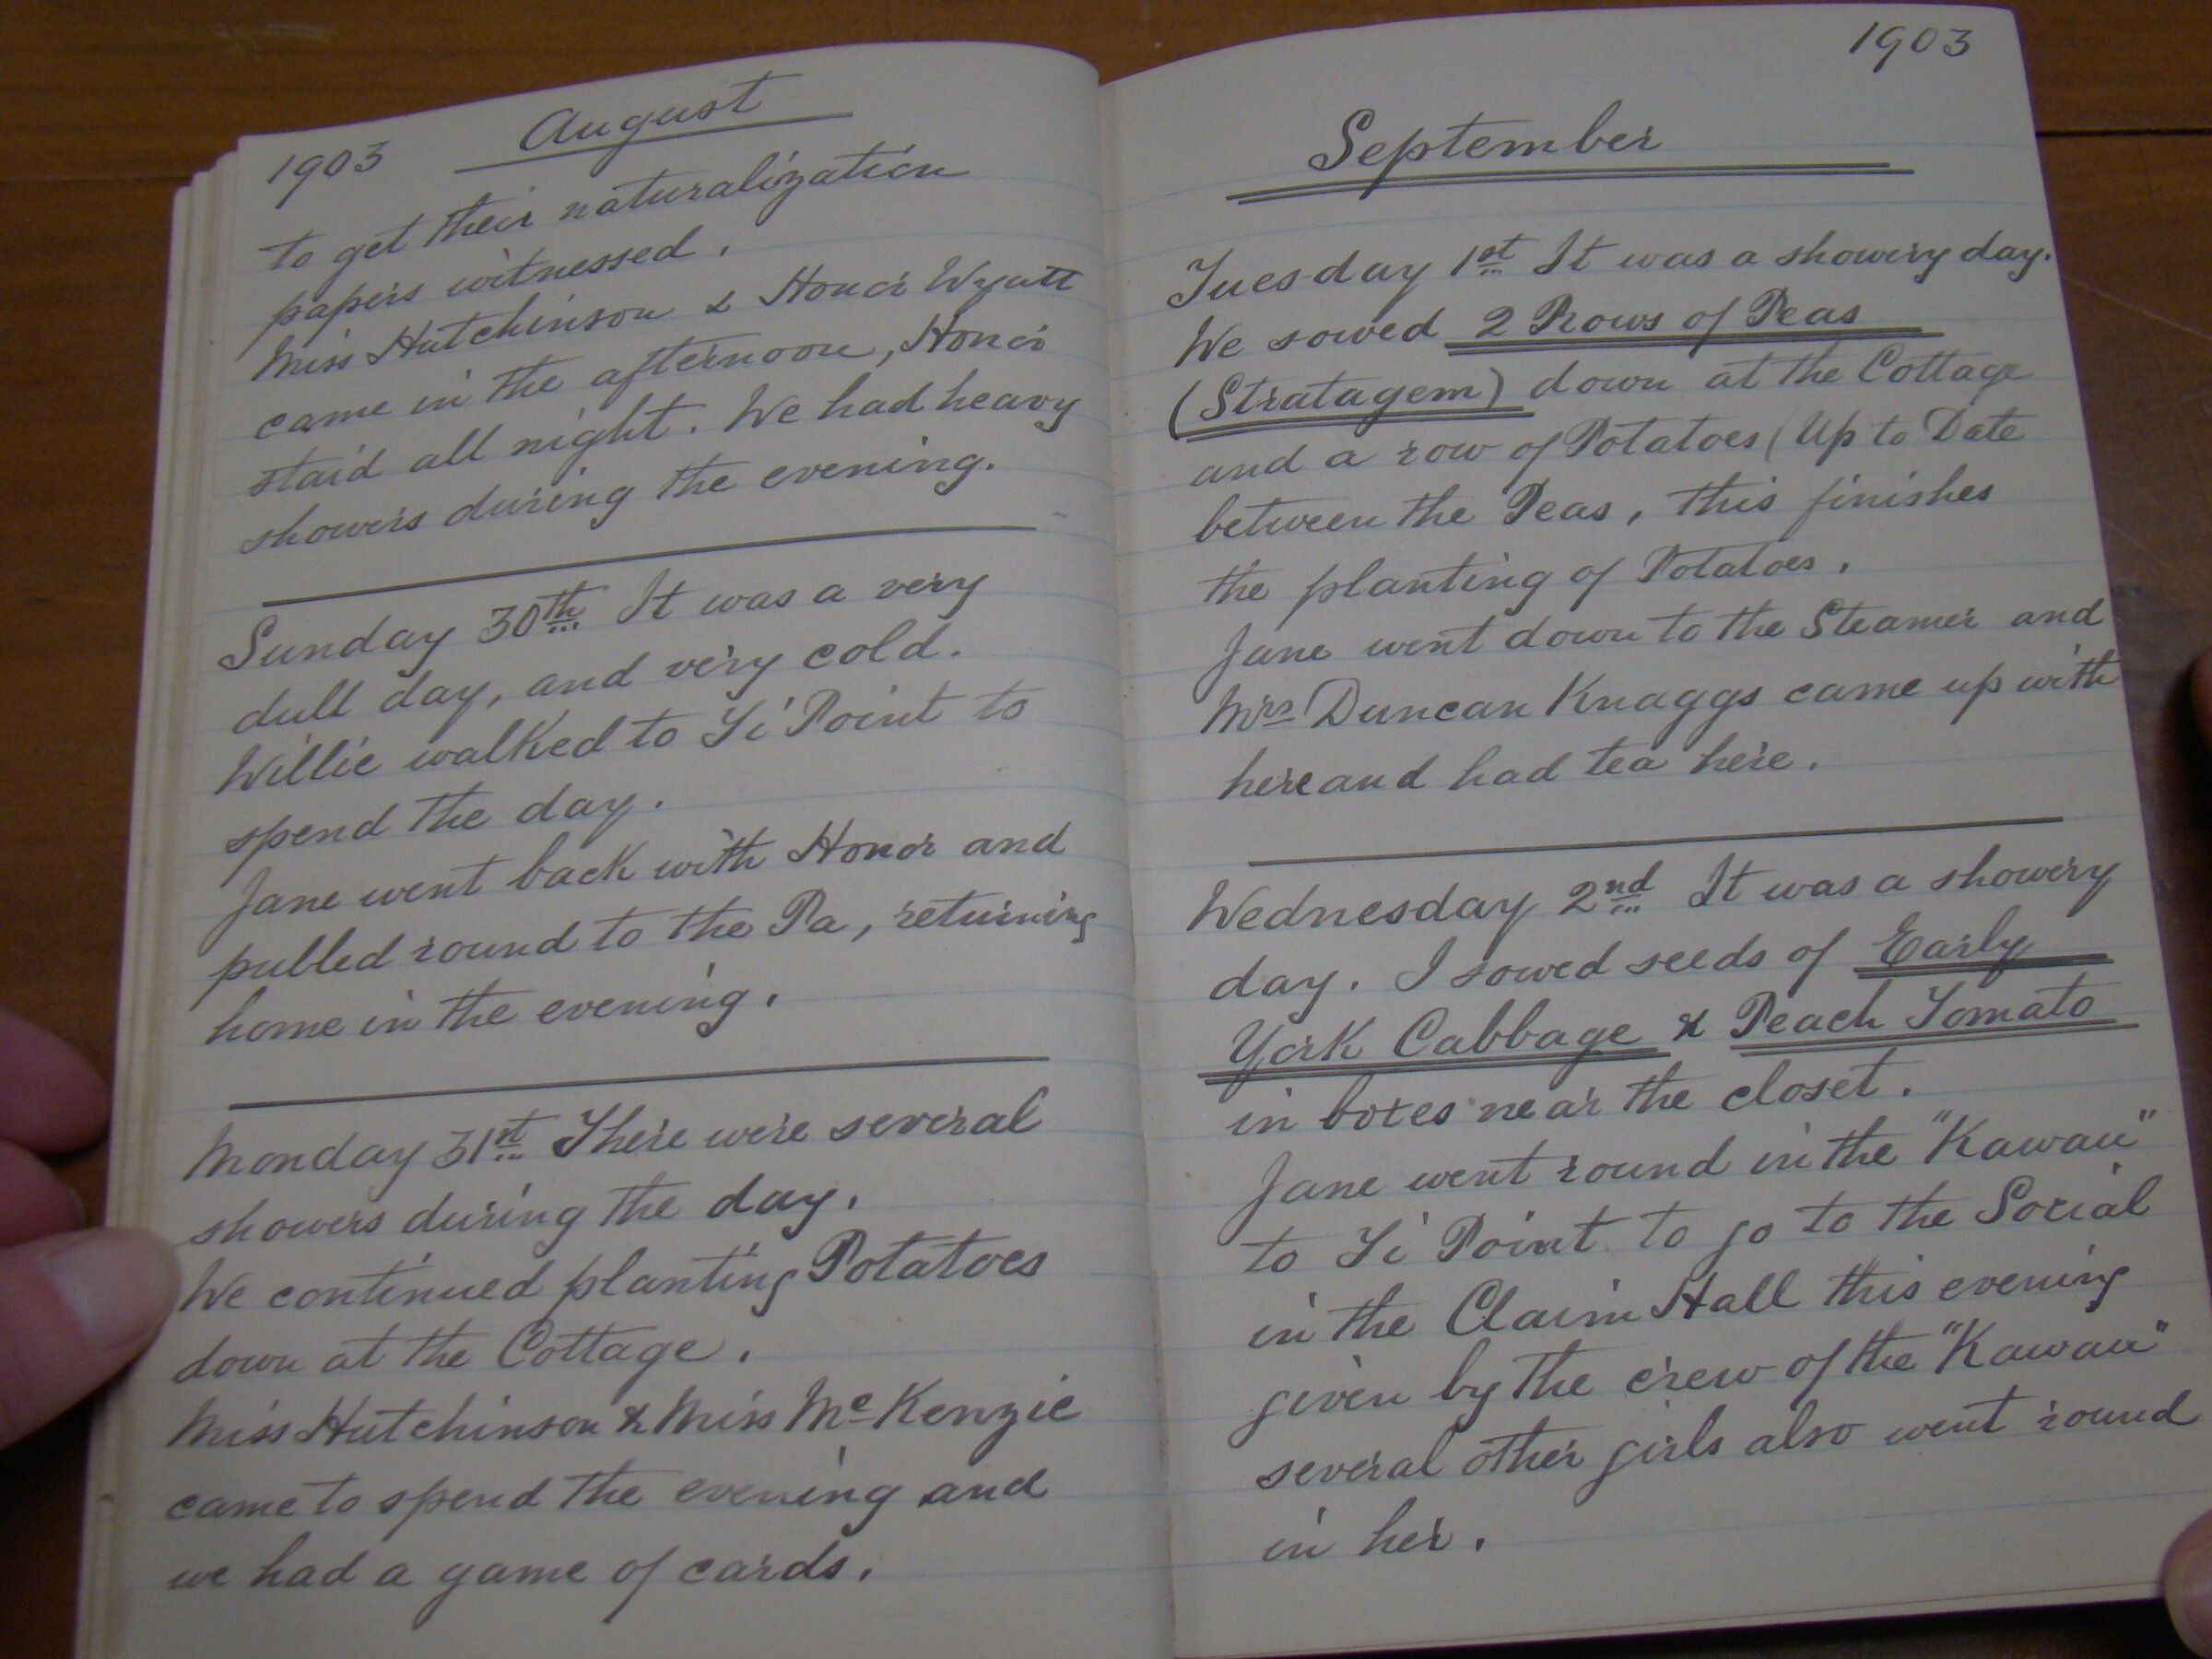 1903 August
to get their naturalization
papers witnessed.
Miss Hutchinson & Honor Wyatt
came in the afternoon, Honor
staid all night. We had heavy
showers during the evening.
Sunday 30th It was a very
dull day, and very cold.
Willie walked to Ti Point to
spend the day.
Jane went back with Honor and
pulled round to the Pa, returning
home in the evening.
Monday 31st There were several
showers during the day.
We continued planting Potatoes
down at the Cottage.
Miss Hutchinson & Miss McKenzie
came to spend the evening and
we had a game of cards.
1903
September
Tuesday 1st It was a showery day.
We sowed 2 Rows of Peas
(Stratagem) down at the Cottage
and a row of Potatoes (Up to Date
between the Peas, this finishes
the planting of Potatoes.
Jane went down to the Steamer and
Mrs Duncan Knaggs came up with
here and had tea here.
Wednesday 2nd It was a showery
day. I sowed seeds of Early
York Cabbage & Peach Tomato
in boxes near the closet.
Jane went round in the "Kawau"
to Ti Point to go to the Social
in the Claim Hall this evening
given by the crew of the "Kawau"
several other girls also went round
in her.